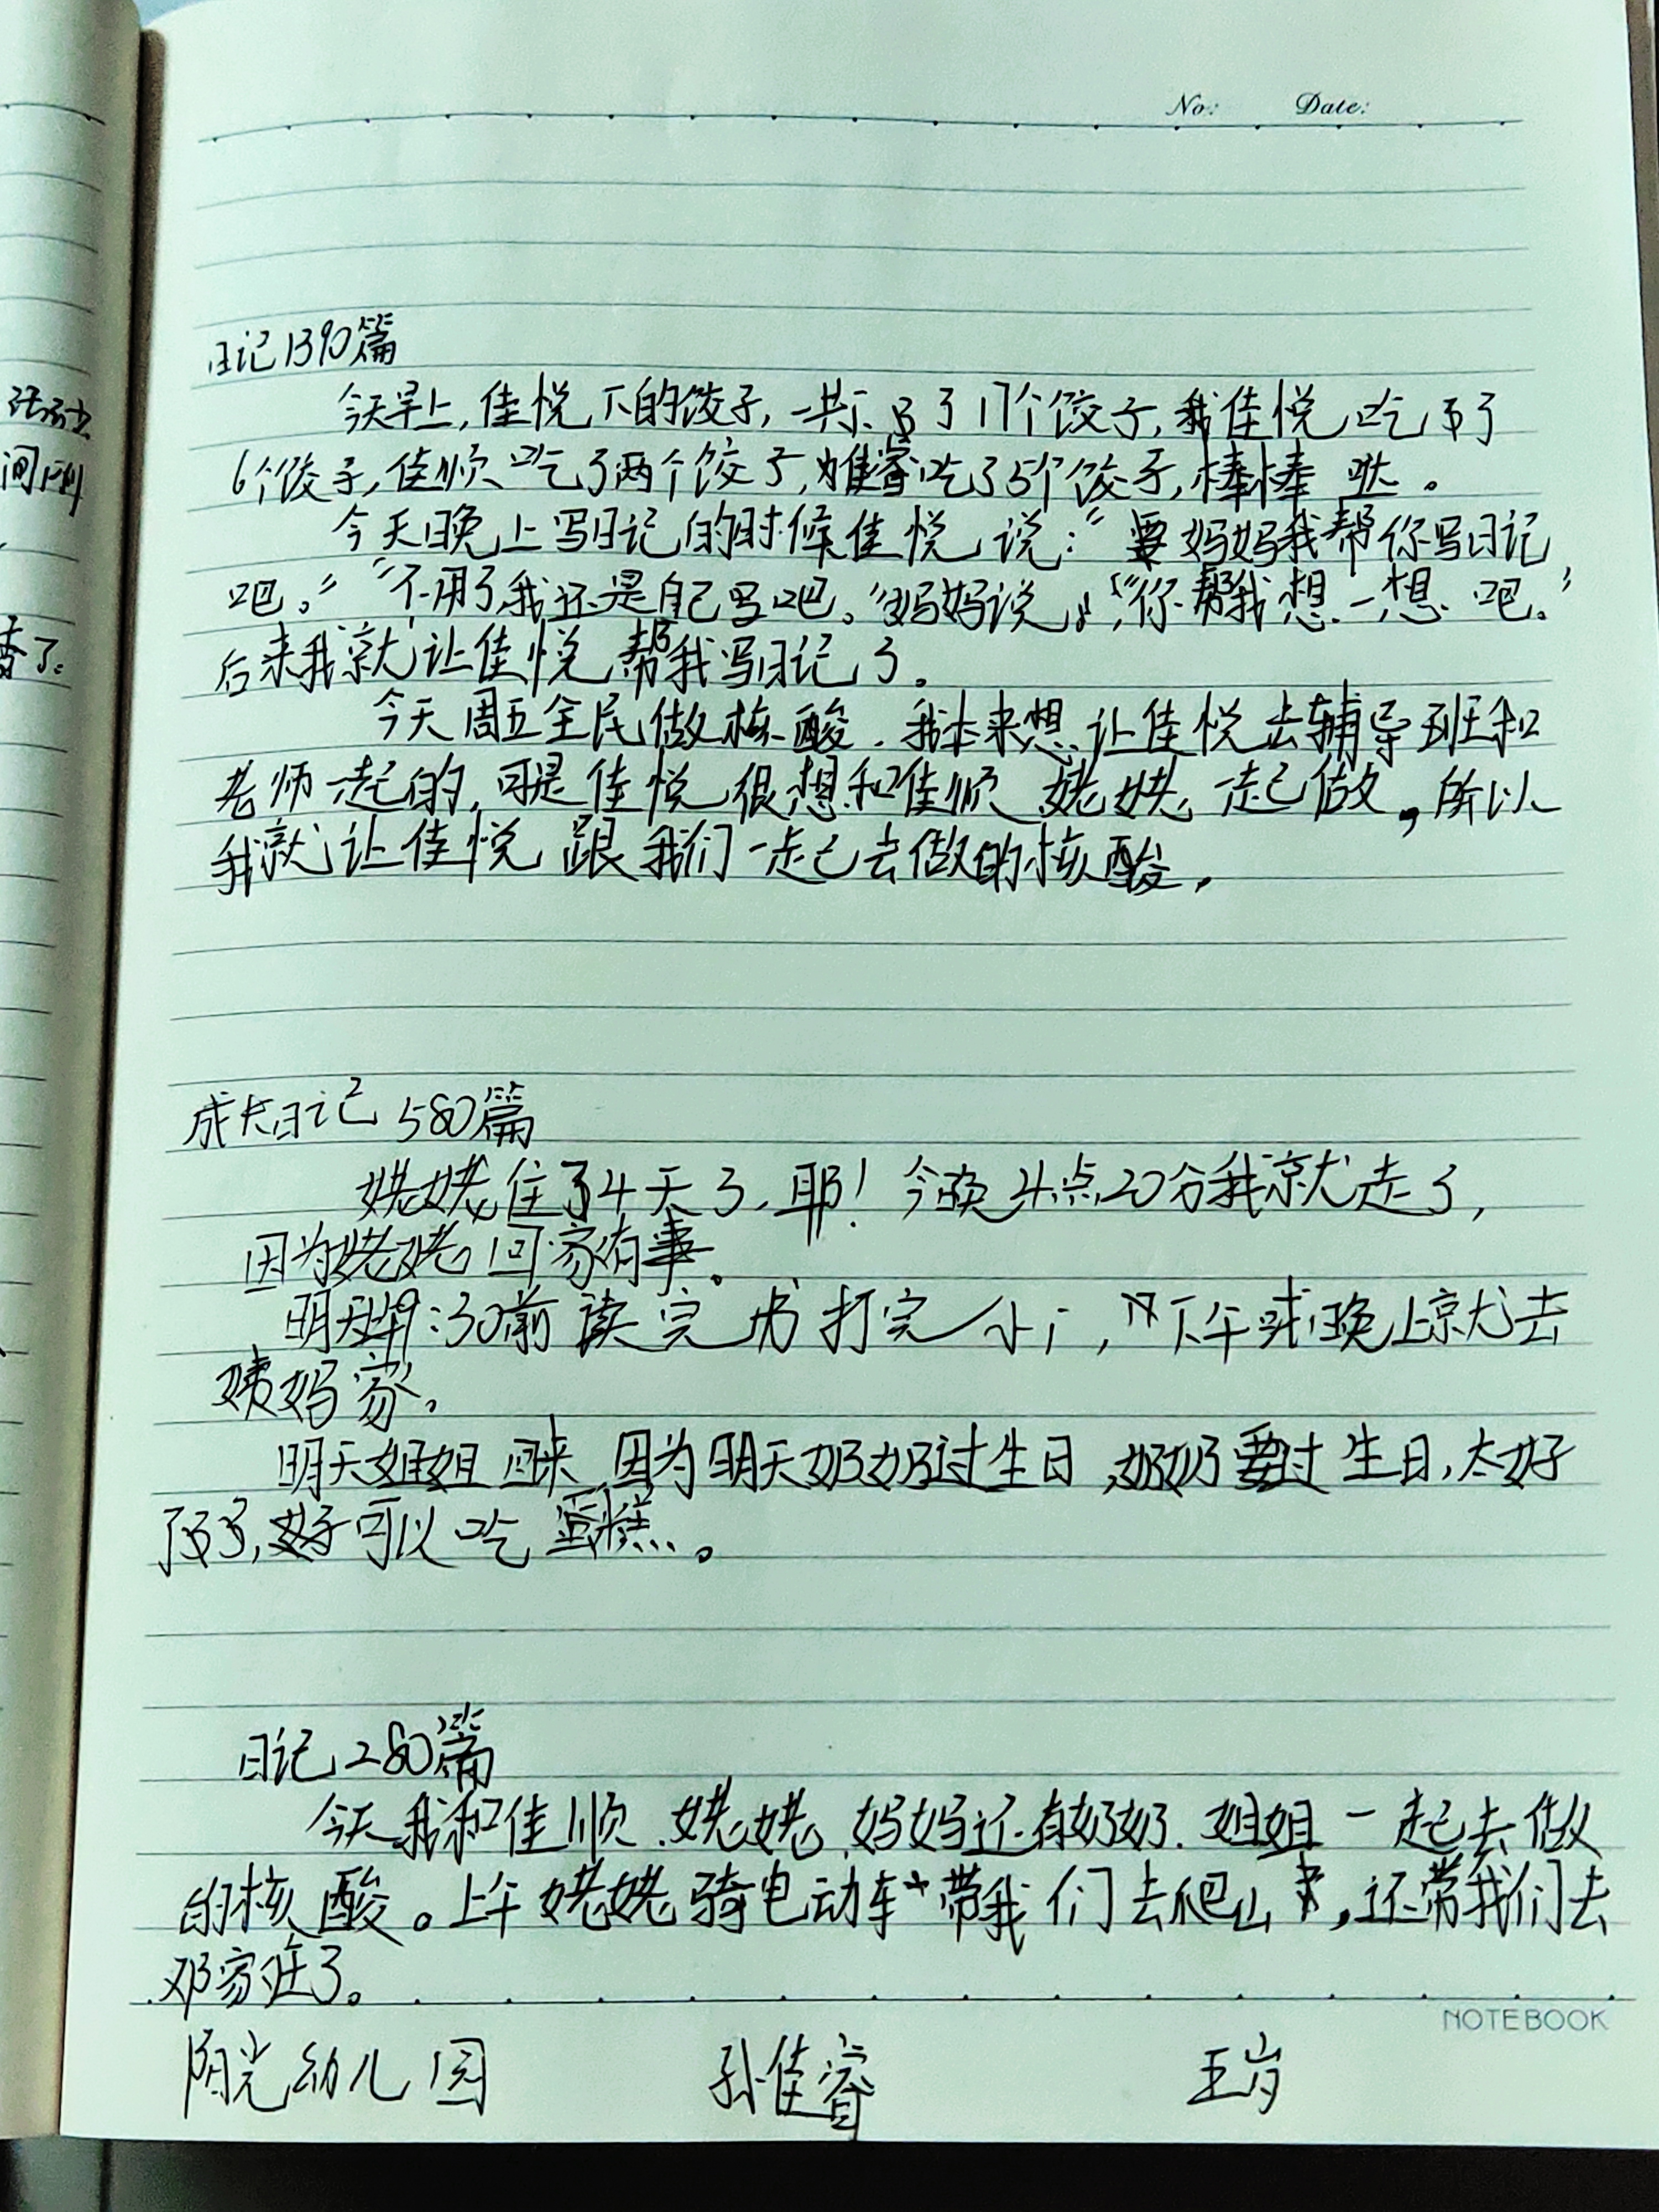 No: Date:
日记1390篇
今天早上,佳悦下的饺子,一共下了17个饺子,我佳悦吃了
6个饺子,佳顺吃了两个饺子,佳睿吃了5个饺子,棒棒哒。
今天晚上写日记的时候佳悦说:“妈妈我帮你写日记
吧。”“不用了我还是自己写吧。”妈妈说,“你帮我想一想吧。”
后来我就让佳悦帮我写日记了。
今天周五全民做核酸.我本来想让佳悦去辅导班和
老师一起的,可是佳悦很想和佳顺姥姥一起做,所以
我就让佳悦跟我们一起去做的核酸,
成长日记580篇
姥姥住了4天了,耶!今晚4点20分我就走了,
因为姥姥回家有事。
明天:30前读完书打完小,下午或晚上就去
姨妈家。
明天姐姐回来,因为明天奶奶过生日,奶奶要过生日,太好
了,好可以吃蛋糕。
日记280篇
今天我和佳顺.姥姥.妈妈还有奶奶.姐姐一起去做
的核酸。上午姥姥骑电动车带我们去爬山,还带我们去
邓家庄了。
NOTEBOOK
阳光幼儿园 孙佳睿 五岁